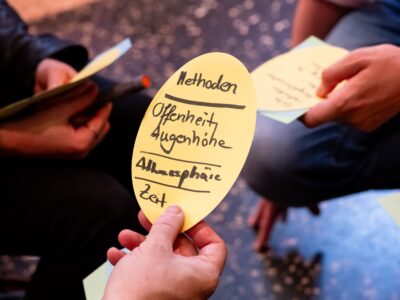 Methoden
Offenheit
Augenhöhe
Athmosphäre
Zeit